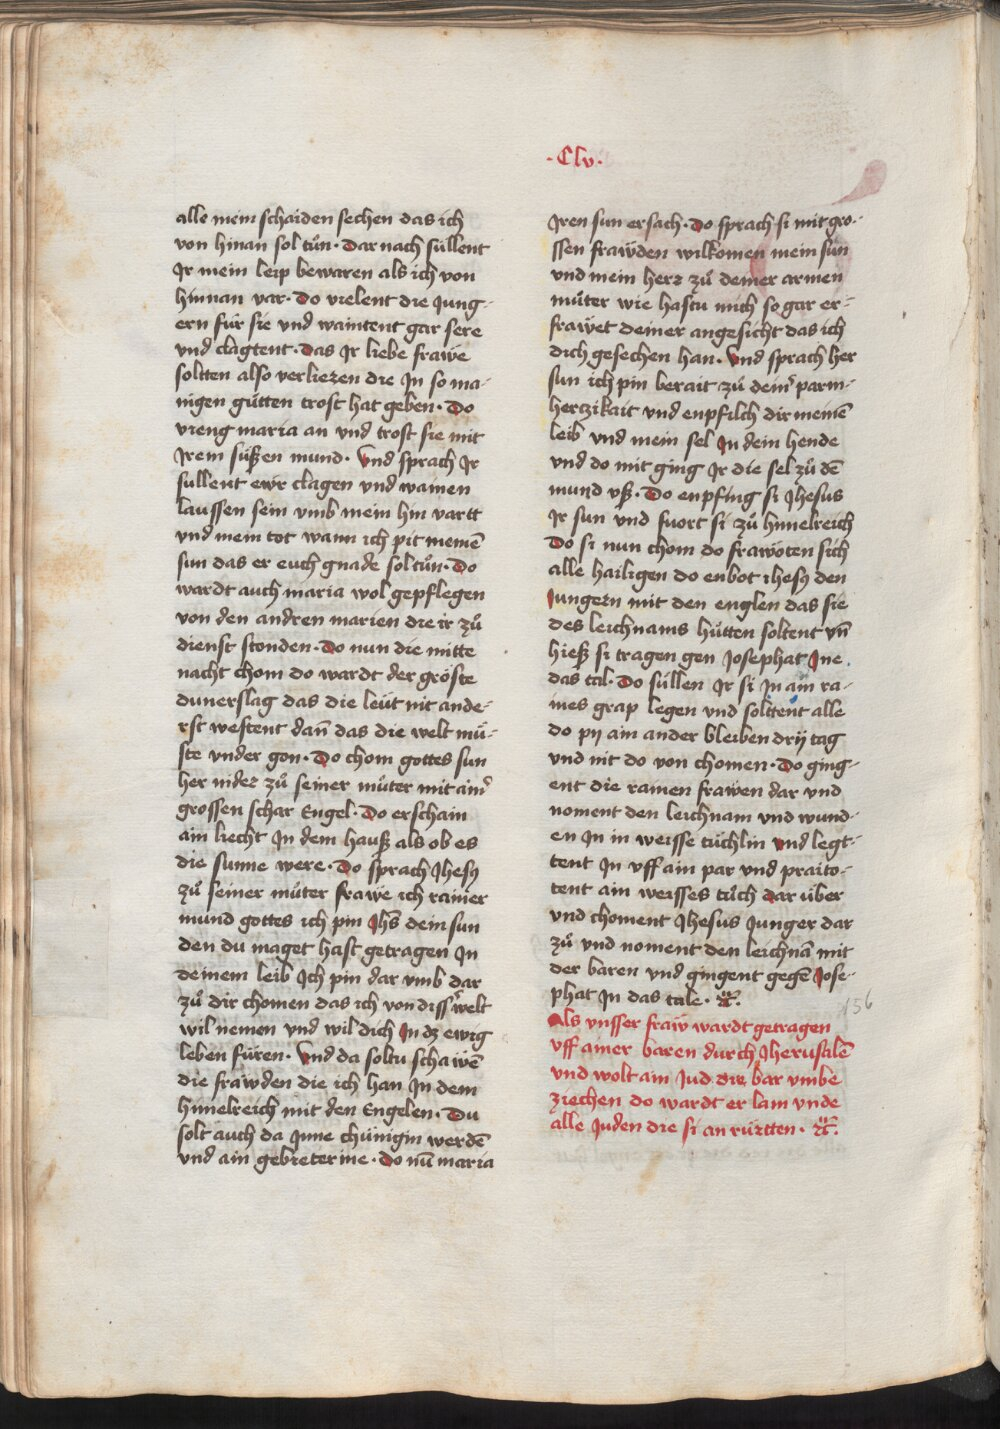 ·Clv·
alle mein schaiden sechen das ich
von hinan sol tůn · Dar nach süllent
Ir mein leip bewaren als ich von
hinnan var · Do vielent die Jung-
ern für sie vnd waintent gar sere
vnd clagtent · Das Ir liebe frawe
soltten also verliezen die In so ma-
nigen gütten trost hat geben · Do
vieng maria an vnd trost sie mit
Irem süßen mund · Vnd sprach Ir
sullent ewr clagen vnd wainen
laussen sein vmb mein hin vartt
vnd mein tot wann ich pit meinē
sun das er euch gnade sol tůn · Do
wardt auch maria wol gepflegen
von den andren marien die ir zů
dienst stonden · Do nun die mitte
nacht chom do wardt der gröste
dunerslag das die leüt nit ande-
rst westent dañ das die welt mů-
ste vnder gon · Do chom gottes sun
her nider zů seiner můter mit aim̄
grossen schar Engel · Do erschain
ain liecht In dem hauß als ob es
die sunne were · Do sprach Jhesꝯ
zů seiner můter frawe ich rainer
mund gottes ich pin Jhs̄ dein sun
den du maget hast getragen In
deinem leib Ich pin dar vmb dar
zů dir chomen das ich von diss̾ welt
wil nemen vnd wil dich In dz ewig
leben füren · Vnd da soltu schawē
die frawden die ich han In dem
himelreich mit den Engelen · Du
solt auch da Inne chünigin werdē
vnd ain gebieterine · Do nū maria
Iren sun ersach · Do sprach si mit gro-
ssen frawden wilkomen mein sun
vnd mein herz zů deiner armen
můter wie hastu mich so gar er-
frawet deiner angesicht das ich
dich gesechen han · Vnd sprach her
sun ich pin berait zů dein̾ parm-
herzikait vnd enpfilch dir meinē
leib vnd mein sel In dein hende
vnd do mit ging Ir die sel zů dē
mund vß · Do enpfing si Jhesus
Ir sun vnd fuort si zů himelreich
Do si nun chom do frawoten sich
alle hailigen do enbot ihesꝯ den
Jungern mit den englen das sie
des leichnams hütten soltent vn̄
hieß si tragen gen Josephat Ine
das tal · Do süllen Ir si In ain ra-
ines grap legen vnd solttent alle
do pij ain ander bleiben drij tag
vnd nit do von chomen · Do ging-
ent die rainen frawen dar vnd
noment den leichnam vnd wund-
en In in weisse tüchlin vnd legt-
tent In vff ain par vnd praito-
tent ain weisses tůch dar über
vnd choment Jhesus Junger dar
zů vnd noment den leichnā mit
der baren vnd gingent gegē Jose-
phat In das tale · ⁊c̈.
156
Als vnsser fraw wardt getragen
vff ainer baren durch Jherusalē
vnd wolt ain Jud die bar vmbe
ziechen do wardt er lam vnde
alle Juden die si an rürtten · ⁊c̈.